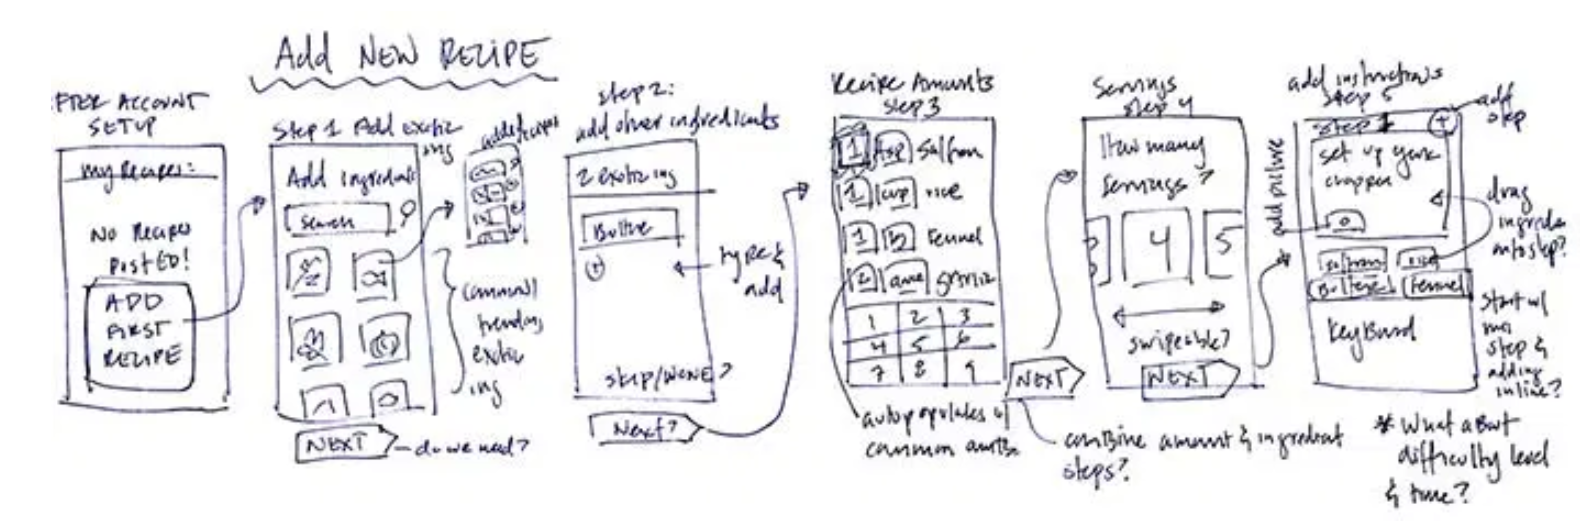 Add NEW RECIPE
FTER ACCOUNT
SETUP
My Recipes:
No Recipes
PostED!
ADD
FIRST
RECIPE
Step 1 Add exotic
ing
Add Ingredient
Search
common/
trending
exotic
ing
NEXT
do we need?
Step 2:
add other ingredients
2 exotic ing
Butter
+
type &
add
skip/NONE?
Next?
Recipe Amounts
Step 3
1 tsp Saffron
1 cup rice
1 lb Fennel
2
1 2 3
4 5 6
7 8 9
NEXT
autopopulates w/
common amts.
combine amount & ingredient
steps?
Servings
Step 4
How many
Servings?
3 4 5
swipeable?
NEXT
add picture
add instructions
Step 5
add
step
Step 1
+
Set up your
chopper
drag
ingredien
into step?
saffron rice
Fennel
KeyBoard
Start w/
step &
adding
inline?
* What about
difficulty level
& time?